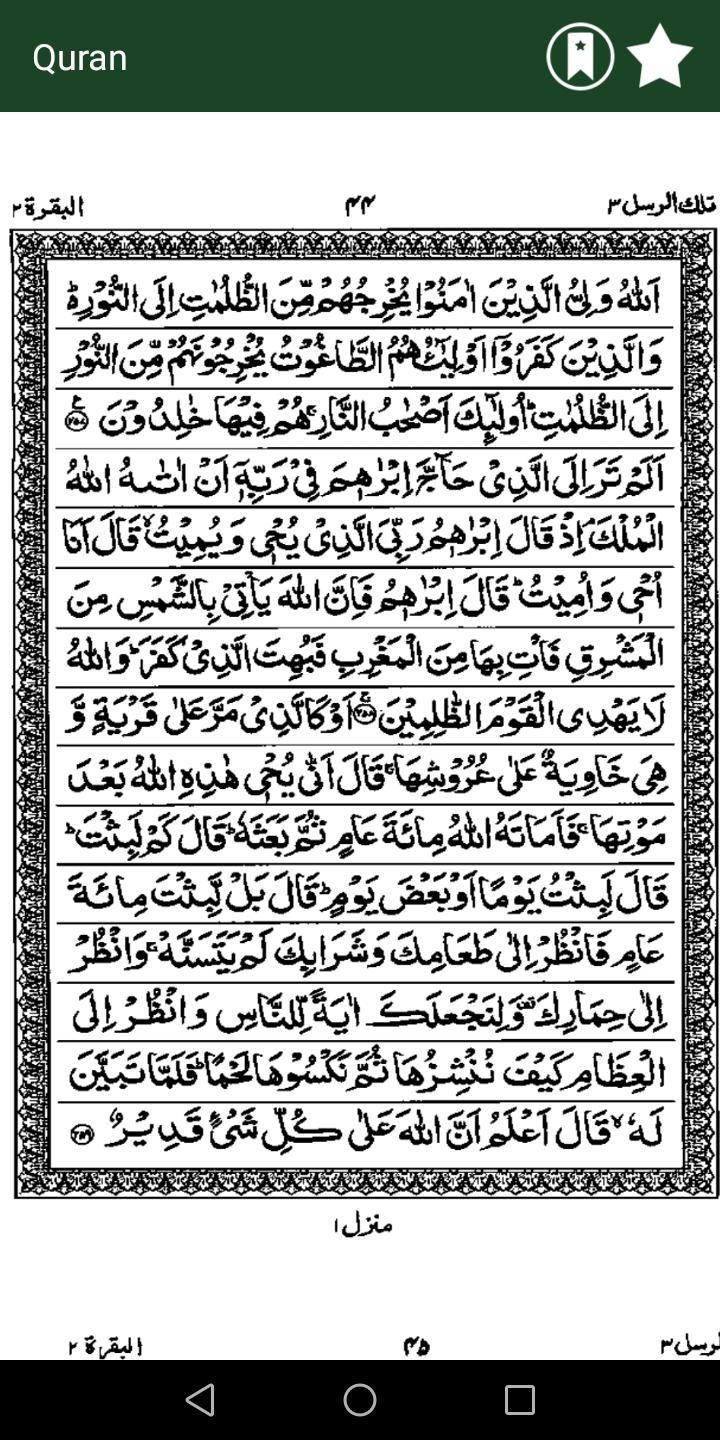 Quran
تلك الرسل ٣ ۴۴ البقرة ٢
اَللّٰهُ وَلِیُّ الَّذِیْنَ اٰمَنُوْا یُخْرِجُهُمْ مِّنَ الظُّلُمٰتِ اِلَی النُّوْرِ۬ؕ
وَالَّذِیْنَ كَفَرُوْۤا اَوْلِیٰٓـُٔهُمُ الطَّاغُوْتُ یُخْرِجُوْنَهُمْ مِّنَ النُّوْرِ
اِلَی الظُّلُمٰتِ ؕ اُولٰٓىِٕكَ اَصْحٰبُ النَّارِ ۚ هُمْ فِیْهَا خٰلِدُوْنَ ۧ۲۵۷
اَلَمْ تَرَ اِلَی الَّذِیْ حَآجَّ اِبْرٰهٖمَ فِیْ رَبِّهٖۤ اَنْ اٰتٰىهُ اللّٰهُ
الْمُلْكَ ۘ اِذْ قَالَ اِبْرٰهٖمُ رَبِّیَ الَّذِیْ یُحْیٖ وَیُمِیْتُ ۙ قَالَ اَنَا
اُحْیٖ وَاُمِیْتُ ؕ قَالَ اِبْرٰهٖمُ فَاِنَّ اللّٰهَ یَاْتِیْ بِالشَّمْسِ مِنَ
الْمَشْرِقِ فَاْتِ بِهَا مِنَ الْمَغْرِبِ فَبُهِتَ الَّذِیْ كَفَرَ ؕ وَاللّٰهُ
لَا یَهْدِی الْقَوْمَ الظّٰلِمِیْنَ ۚ۲۵۸ اَوْ كَالَّذِیْ مَرَّ عَلٰی قَرْیَةٍ وَّ
هِیَ خَاوِیَةٌ عَلٰی عُرُوْشِهَا ۚ قَالَ اَنّٰی یُحْیٖ هٰذِهِ اللّٰهُ بَعْدَ
مَوْتِهَا ۚ فَاَمَاتَهُ اللّٰهُ مِائَةَ عَامٍ ثُمَّ بَعَثَهٗ ؕ قَالَ كَمْ لَبِثْتَ ؕ
قَالَ لَبِثْتُ یَوْمًا اَوْ بَعْضَ یَوْمٍ ؕ قَالَ بَلْ لَّبِثْتَ مِائَةَ
عَامٍ فَانْظُرْ اِلٰی طَعَامِكَ وَشَرَابِكَ لَمْ یَتَسَنَّهْ ۚ وَانْظُرْ
اِلٰی حِمَارِكَ ۫ وَلِنَجْعَلَكَ اٰیَةً لِّلنَّاسِ وَانْظُرْ اِلَی
الْعِظَامِ كَیْفَ نُنْشِزُهَا ثُمَّ نَكْسُوْهَا لَحْمًا ؕ فَلَمَّا تَبَیَّنَ
لَهٗ ۙ قَالَ اَعْلَمُ اَنَّ اللّٰهَ عَلٰی كُلِّ شَیْءٍ قَدِیْرٌ ۲۵۹
منزل ١
لرسل ٣ ۴۵ البقرة ٢